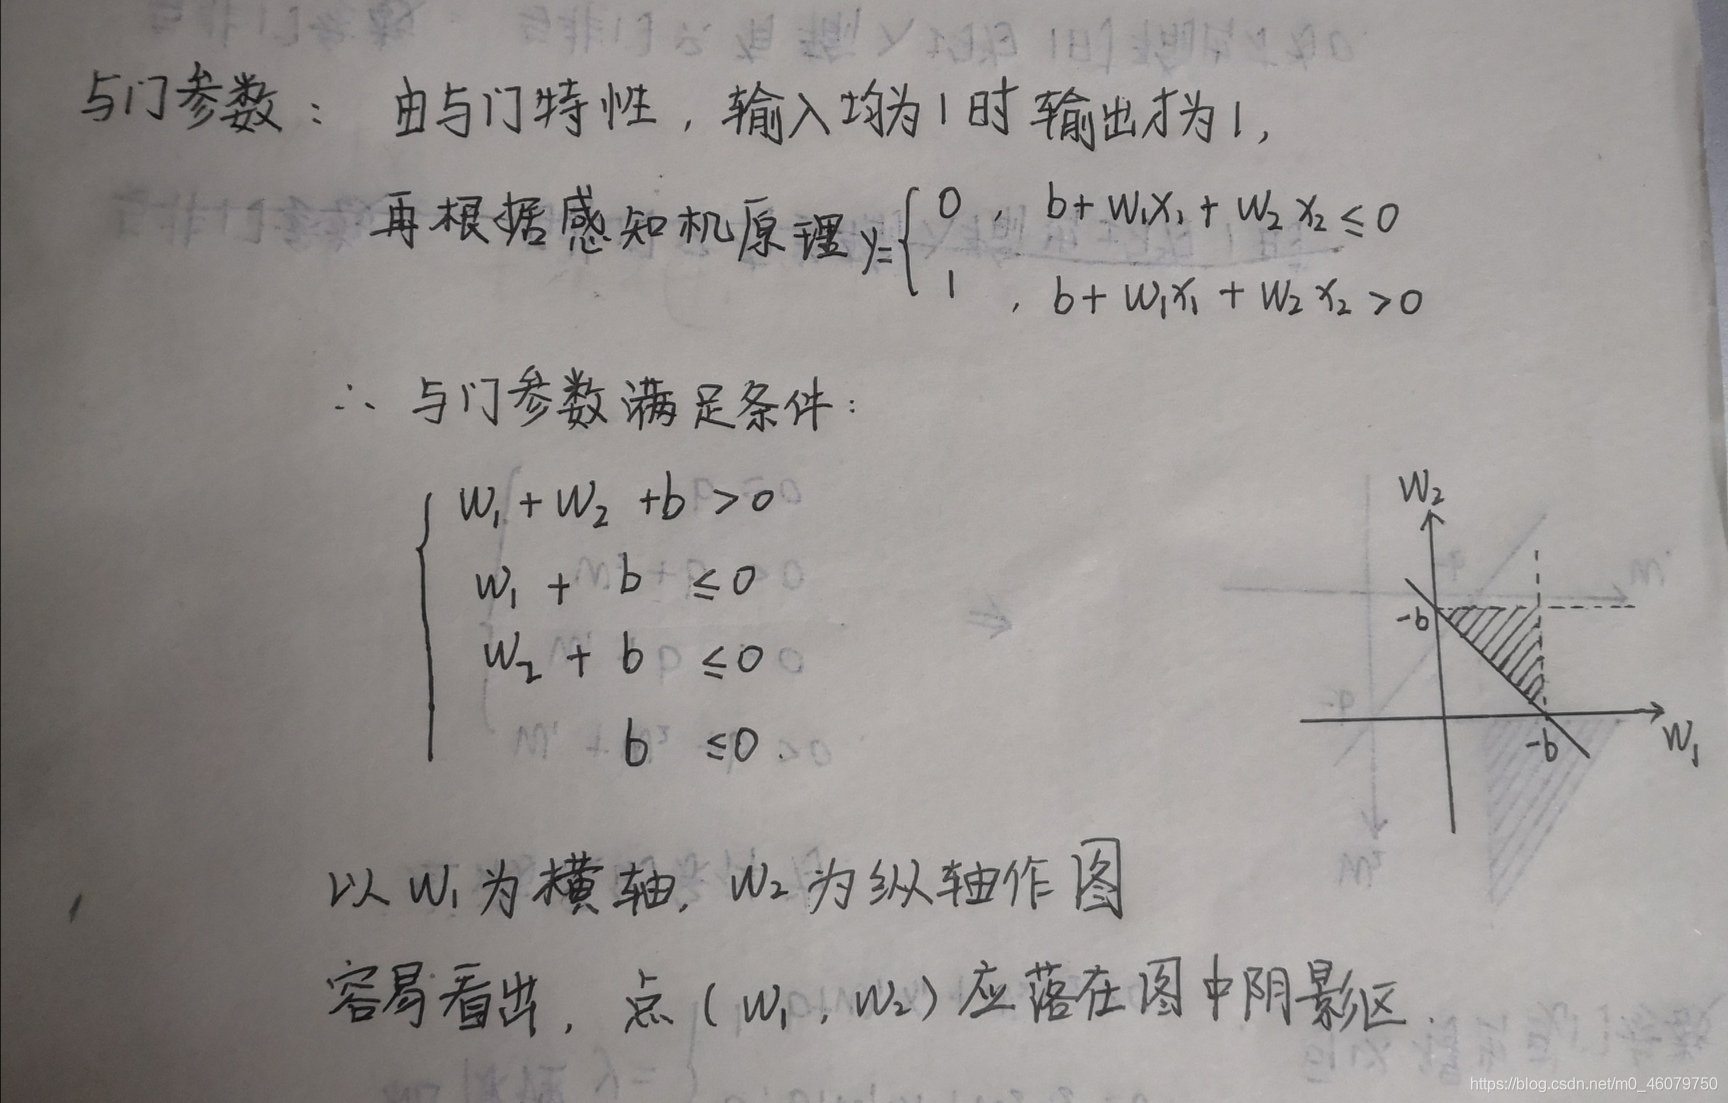 与门参数： 由与门特性，输入均为1时输出才为1，
再根据感知机原理 y= { 0 ， b+W₁X₁+W₂X₂≤0
1 ， b+W₁X₁+W₂X₂>0
∴ 与门参数满足条件：
W₁+W₂+b>0
W₁+b≤0
W₂+b≤0
b≤0.
W₂
-b
-b
W₁
以W₁为横轴，W₂为纵轴作图
容易看出，点(W₁，W₂)应落在图中阴影区.
https://blog.csdn.net/m0_46079750